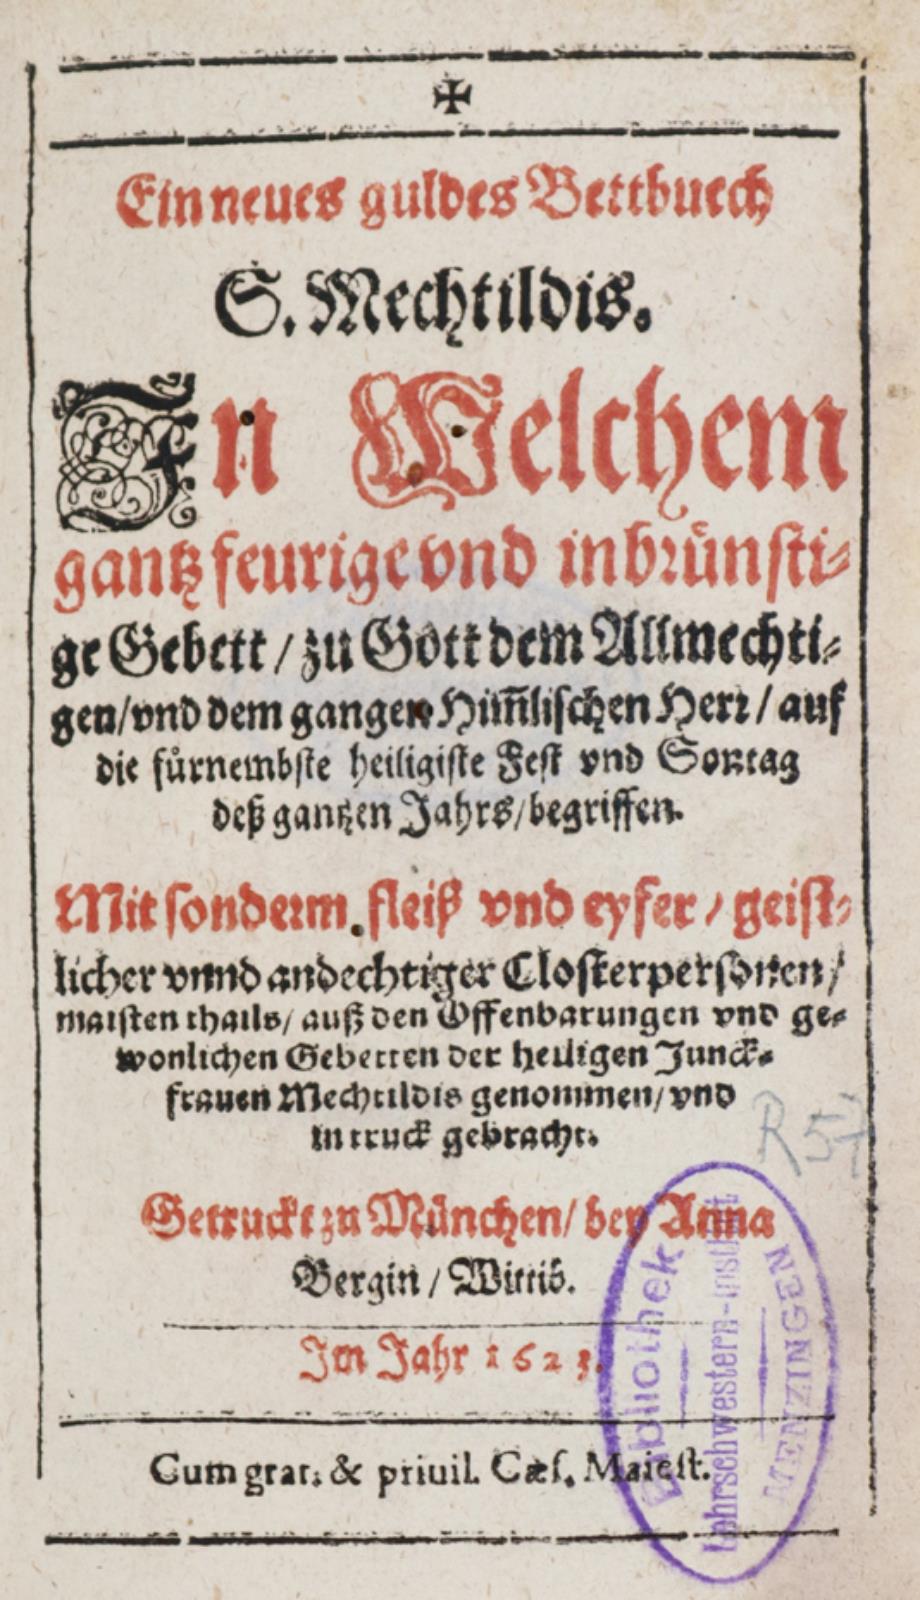 ✠
Ein neues guldes Bettbuech
S. Mechtildis.
In Welchem
gantz feurige vnd inbrünsti-
ge Gebett / zu Gott dem Allmechti-
gen / vnd dem gantzen Him̃lischen Herz / auf
die fürnembste heiligiste Fest vnd Sontag
deß gantzen Jahrs / begriffen.
Mit sonderm fleiß vnd eyfer / geist-
licher vnnd andechtiger Closterpersonen /
maisten thails / auß den Offenbarungen vnd ge-
wonlichen Gebetten der heiligen Junck-
frauen Mechtildis genommen / vnd
in truck gebracht.
Getruckt zu München / bey Anna
Bergin / Wittib.
Im Jahr 1623.
Cum grat. & priuil. Cæs. Maiest.
R 57
Bibliothek
Lehrschwestern-Institut
MENZINGEN